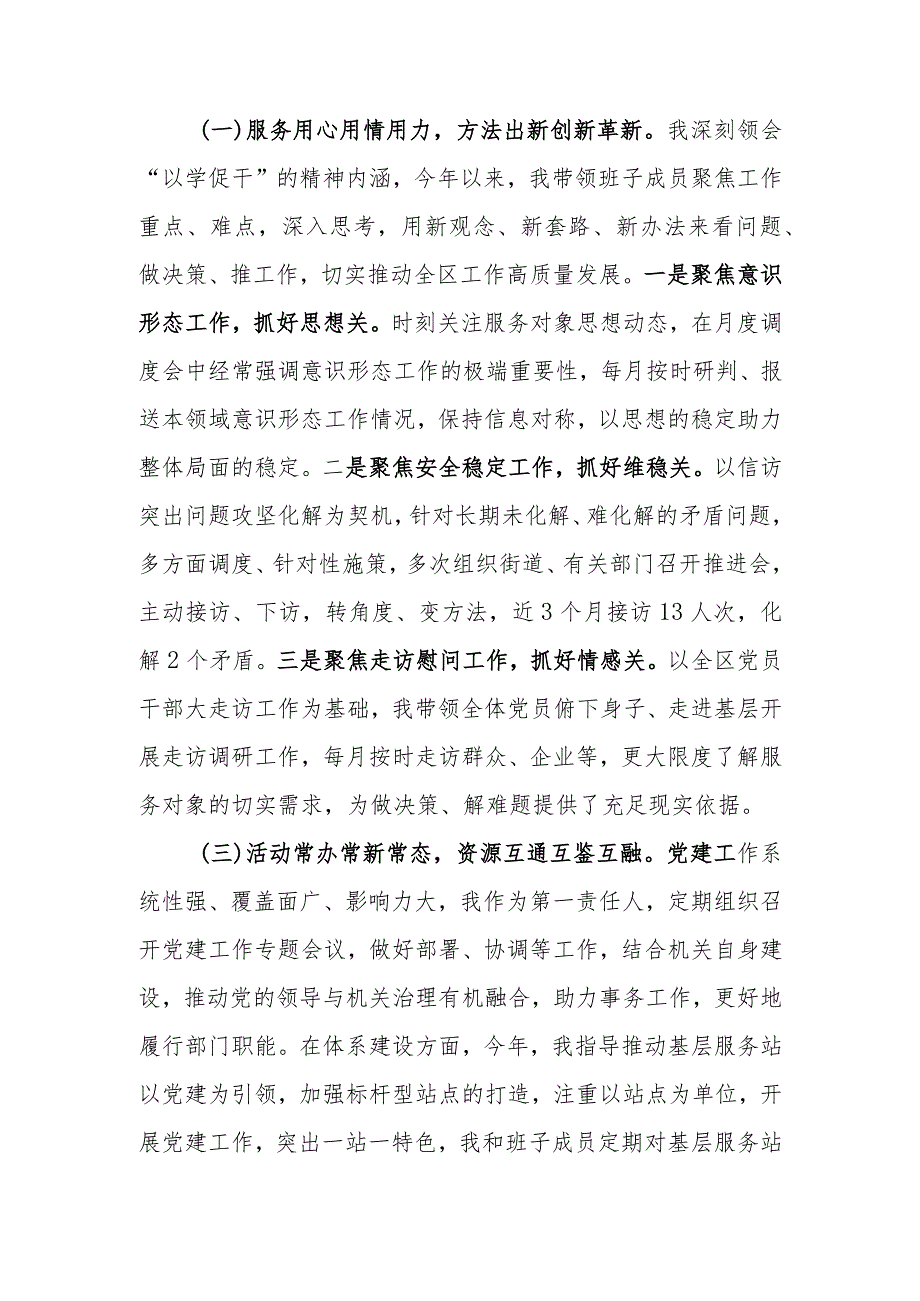 (一)服务用心用情用力，方法出新创新革新。我深刻领会
“以学促干”的精神内涵，今年以来，我带领班子成员聚焦工作
重点、难点，深入思考，用新观念、新套路、新办法来看问题、
做决策、推工作，切实推动全区工作高质量发展。一是聚焦意识
形态工作，抓好思想关。时刻关注服务对象思想动态，在月度调
度会中经常强调意识形态工作的极端重要性，每月按时研判、报
送本领域意识形态工作情况，保持信息对称，以思想的稳定助力
整体局面的稳定。二是聚焦安全稳定工作，抓好维稳关。以信访
突出问题攻坚化解为契机，针对长期未化解、难化解的矛盾问题，
多方面调度、针对性施策，多次组织街道、有关部门召开推进会，
主动接访、下访，转角度、变方法，近3个月接访13人次，化
解2个矛盾。三是聚焦走访慰问工作，抓好情感关。以全区党员
干部大走访工作为基础，我带领全体党员俯下身子、走进基层开
展走访调研工作，每月按时走访群众、企业等，更大限度了解服
务对象的切实需求，为做决策、解难题提供了充足现实依据。
(三)活动常办常新常态，资源互通互鉴互融。党建工作系
统性强、覆盖面广、影响力大，我作为第一责任人，定期组织召
开党建工作专题会议，做好部署、协调等工作，结合机关自身建
设，推动党的领导与机关治理有机融合，助力事务工作，更好地
履行部门职能。在体系建设方面，今年，我指导推动基层服务站
以党建为引领，加强标杆型站点的打造，注重以站点为单位，开
展党建工作，突出一站一特色，我和班子成员定期对基层服务站